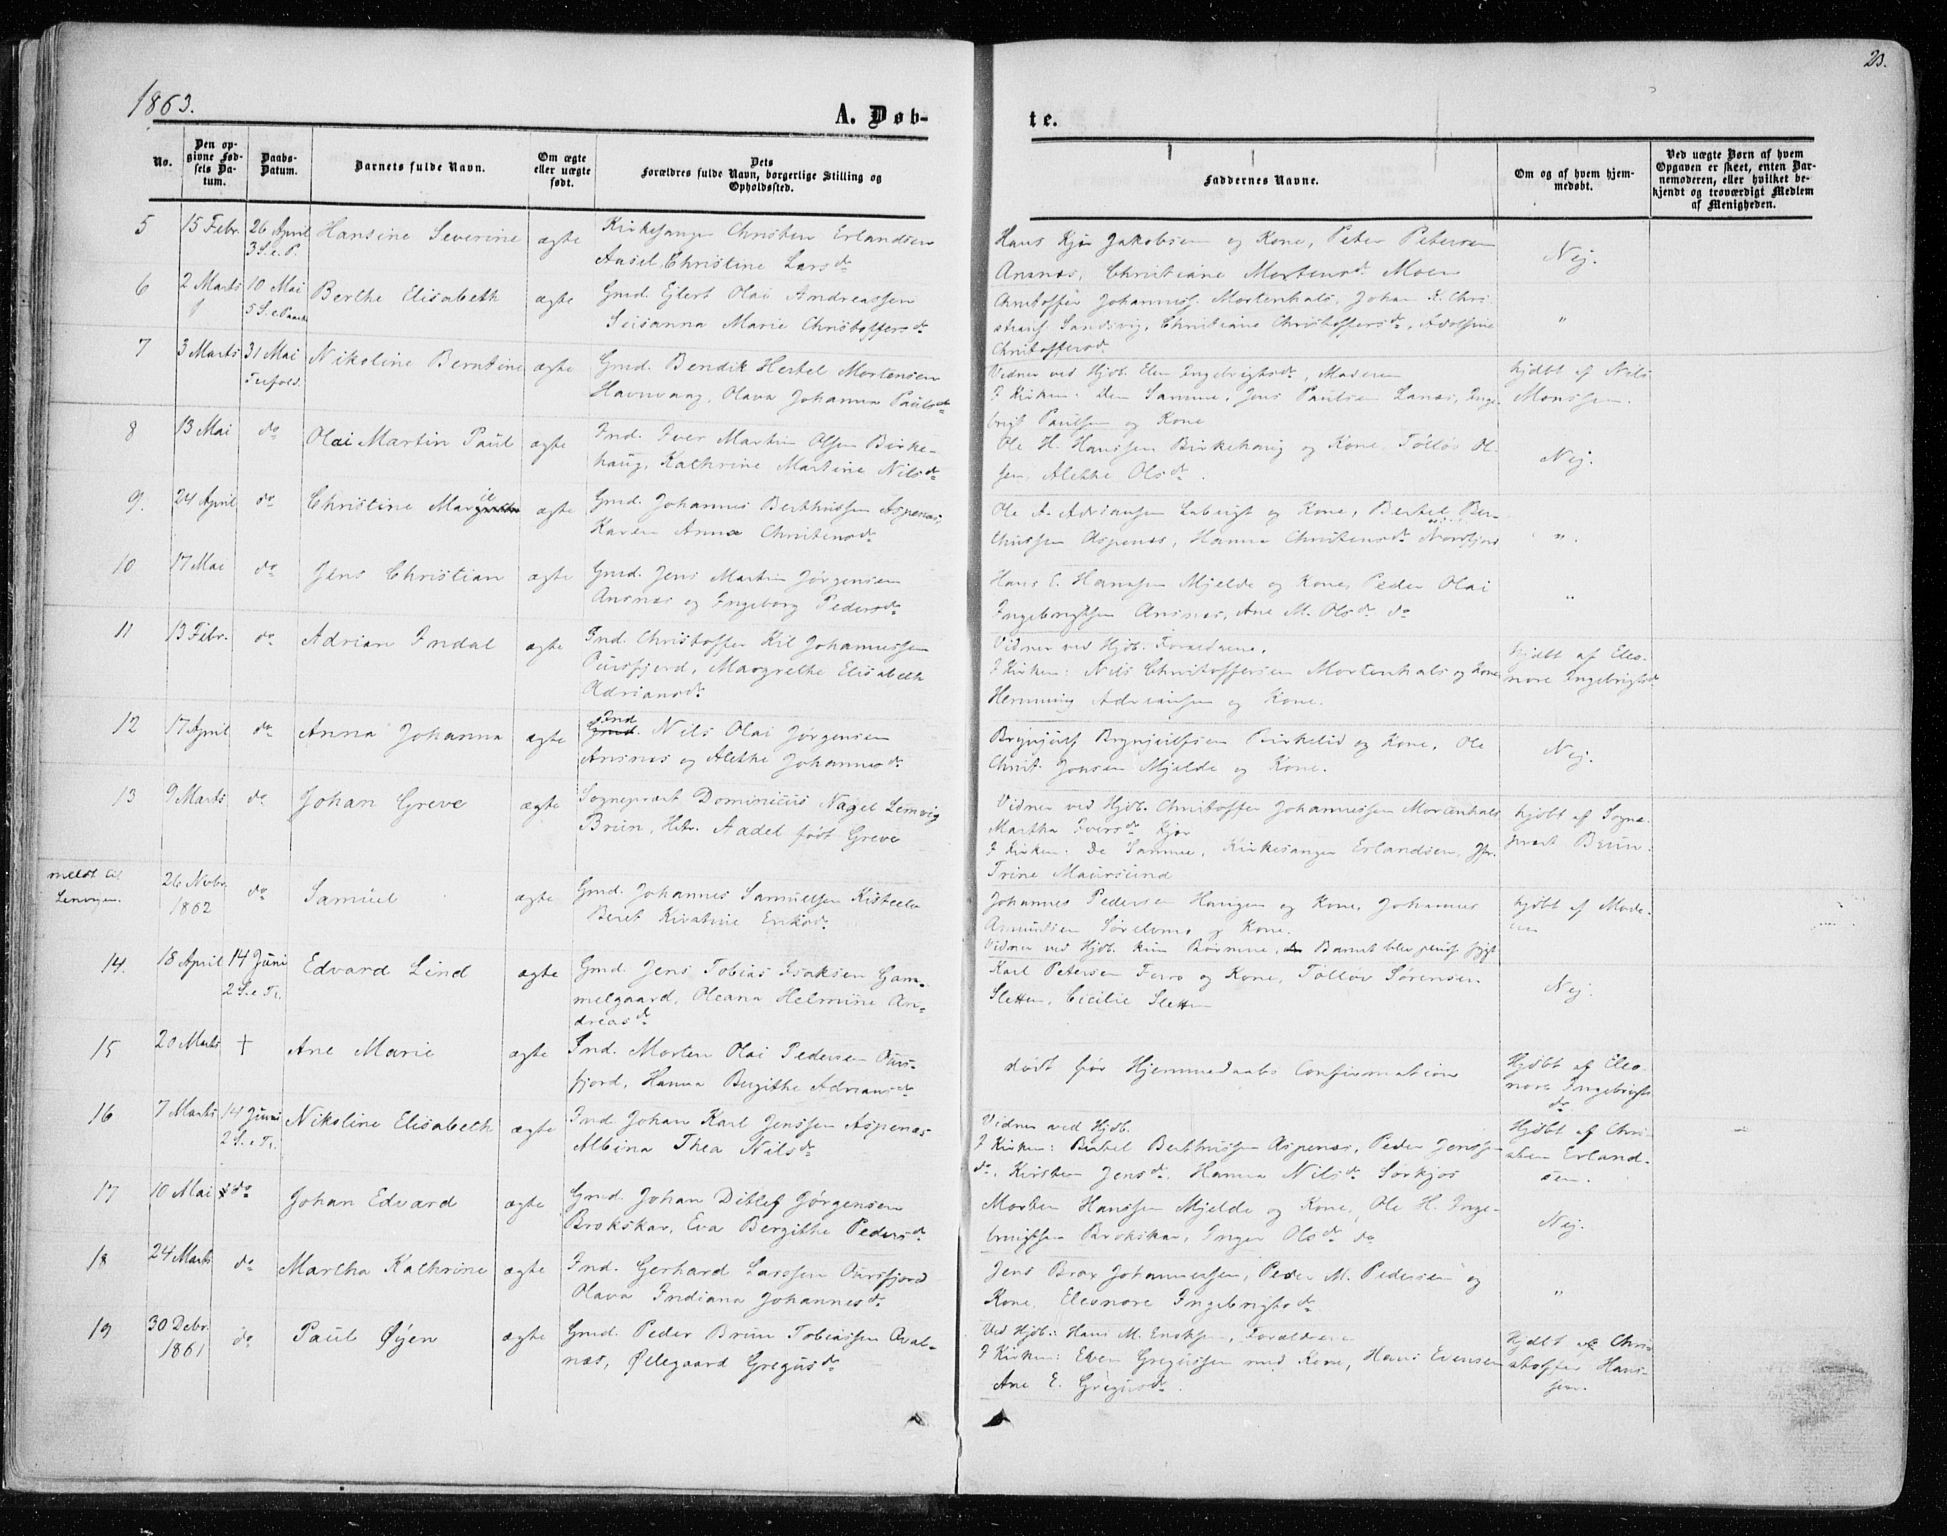 1863.
A. Døb-
te.
23.
No.
Den op-
givne Fød-
sels Da-
tum.
Daabs-
Datum.
Barnets fulde Navn.
Om ægte
eller uægte
født.
Dets
Forældres fulde Navn, borgerlige Stilling og
Opholdssted.
Faddernes Navne.
Om og af hvem hjem-
medøbt.
Ved uægte Børn af hvem
Opgaven er skeet, enten Bar-
nemoderen, eller hvilket be-
kjendt og troværdigt Medlem
af Menigheden.
5 15 Febr. 26 April Hansine Severine ægte Kirkesanger Christen Erlandsen
3 S. e. P. Christine Larsdr
Hans Kjør Jakobsen og Kone, Peter Petersen
Ansnæs, Christiane Mortensdr Moen
Nej.
6 2 Marts 10 Mai Berthe Elisabeth ægte Gmd. Ejlert Olai Andreassen
5 S. e. Paaske Susanna Marie Christoffersdr
Christoffer Johanness. Mortenhals, Johan K. Chri-
stians. Sandvig, Christiane Christoffersdr, Adolfine
Christoffersdr
"
7 3 Marts 31 Mai Nikoline Berntine ægte Gmd. Bendik Hertel Mortensen
Trefold. Havnvaag, Olava Johanna Paulsdr
Vidner ved Hjdb. Elen Ingebrigtsdr, Moderen
I Kirken: Den Samme, Jens Paulsen Lanes, Inge-
brigt Paulsen og Kone
hjdbt af Nils
Monssen.
8 13 Mai do Olai Martin Paul ægte Ind. Iver Martin Olsen Birke-
haug, Kathrine Martine Nilsdr
Ole H. Hanssen Birkehaug og Kone, Tolløv Ol-
sen, Alethe Olsdr.
Nej.
9. 24 April do Christine Marie ægte Gmd. Johannes Berthussen Aspenæs,
Karen Anna Christensdr
Ole A. Adriansen og Kone, Bertel Ber-
thussen Aspenæs, Hanna Christensdr Nordfjord
".
10 17 Mai do Jens Christian ægte Gmd. Jens Martin Jørgensen
Ansnæs og Ingeborg Pedersdr
Hans E. Hanssen Mjelde og Kone, Peder Olai
Ingebrigtsen Ansnæs, Ane M. Olsdr do
"
11 13 Febr. do Adrian Indal ægte Ind. Christoffer Kil Johannessen
Oursfjord, Margrethe Elisabeth
Adriansdr
Vidner ved Hjdb. Forældrene.
I Kirken: Nils Christoffersen Mortenhals og Kone
Henning Adriansen og Kone.
hjdbt af Eleo-
nore Ingebrigtsdr
12 17 April do Anna Johanna ægte Ind. Nils Olai Jørgensen
Ansnæs og Alethe Johannesdr
Brynjulf Brynjulfsen Birkelid og Kone, Ole
Christ. Jonsen Mjelde og Kone.
Nej.
13 9 Marts do Johan Greve ægte Sognepræst Dominicus Nagel Lemvig
Brun, Hstr. Aadel født Greve
Vidner ved Hjdb. Christoffer Johannessen Mortenhals
Martha Iversdr Kjør
I Kirken: De Samme, Kirkesanger Erlandsen, Jfr.
Trine Maursund
hjdbt af Sogne-
præst Brun.
meldt til
Lenvigen.
26 Novbr. do Samuel ægte Gmd. Johannes Samuelsen
1862 Beret Kirstine Eriksdr.
Johannes Pedersen Haugen og Kone, Johannes
Amundsen og Kone.
Vidner ved Hjdb. kun Børnene, Barnet blev
hjdbt af Mode-
ren
14. 18 April 14 Juni Edvard Lind ægte Gmd. Jens Tobias Isaksen Gam-
2 S. e. Tr. melgaard, Oleana Helmine An-
dreasdr
Karl Petersen Forro og Kone, Tolløv Sørensen
Sletten, Cicilie Sletten
Nej.
15 20 Marts † Ane Marie ægte Ind. Morten Olai Pedersen Ours-
fjord, Hanna Bergithe Adriansdr
død før Hjemmedaabs Confirmation
Hjdbt af Eleo-
nore Ingebrigts-
dr
16 7 Marts 14 Juni Nikoline Elisabeth ægte Ind Johan Karl Jenssen Aspenæs
2 S. e. Tr. Albina Thea Nilsdr
Vidner ved Hjdb.
I Kirken: Bertel Berthussen Aspenæs, Peder Jenssen
do, Kirsten Jensdr. Hanna Nilsdr Sørkjos
Hjdbt af Chri-
sten Erland-
sen.
17 10 Mai do Johan Edvard ægte Gmd. Johan Ditlef Jørgensen
Brokskar, Eva Bergithe Pedersdr
Morten Hanssen Mjelde og Kone, Ole H. Inge-
brigtsen Brokskar, Inger Olsdr do
Nej.
18 24 Marts do Martha Kathrine ægte Ind. Gerhard Larssen Oursfjord
Olava Indiana Johannesdr
Jens Brox Johannessen, Peder M. Pedersen og
Kone, Eleonore Ingebrigtsdr
"
19 30 Debr. do Paul Øyen ægte Gmd. Peder Brun Tobiassen Aval-
1861 næs, Ølegaard Gregusdr
Ved Hjdb.: Hans M. Enoksen, Forældrene
I Kirken: Even Gregussen med Kone, Hans Evensen
Ane E. Gregusdr.
Hjdbt af Chri-
stoffer Hans-
sen.